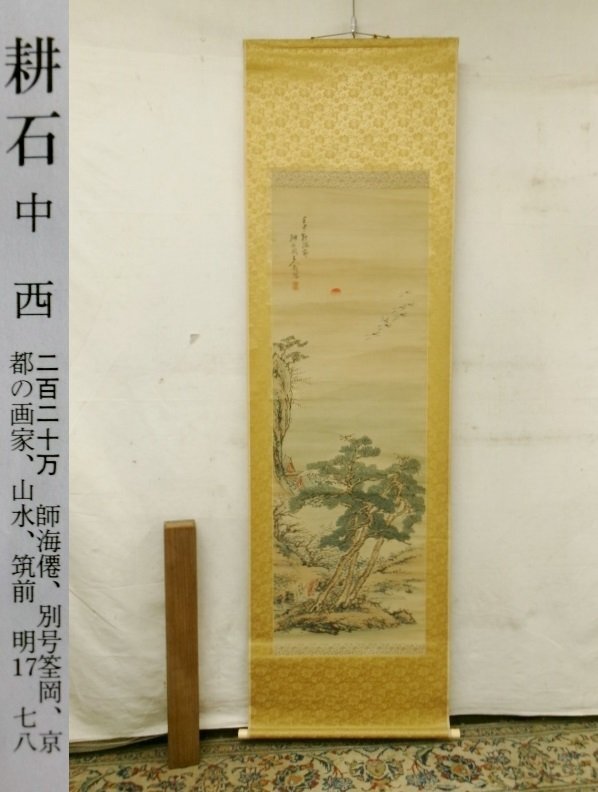 耕石 中西
二百二十万 師海僊、別号筌岡、京
都の画家、山水、筑前 明17 七八